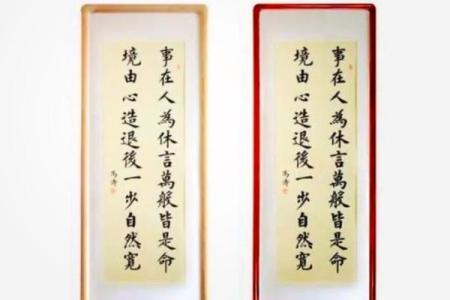 事在人為休言萬般皆是命
境由心造退後一步自然寬
事在人為休言萬般皆是命
境由心造退後一步自然寬